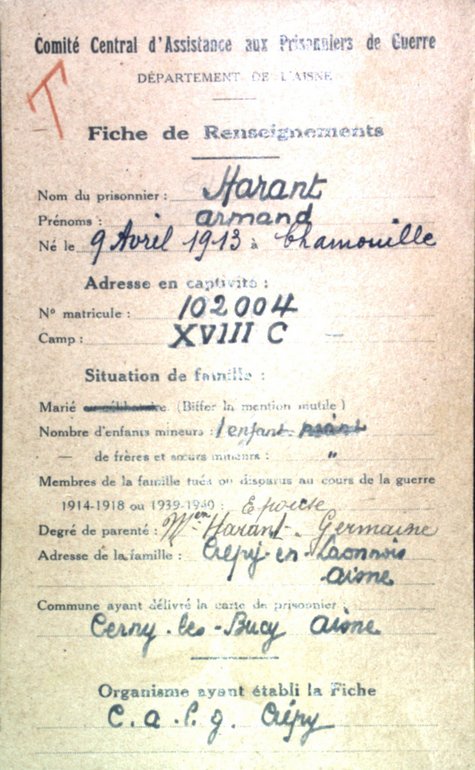 Comité Central d'Assistance aux Prisonniers de Guerre
DÉPARTEMENT DE L'AISNE
T
Fiche de Renseignements
Nom du prisonnier : Harant
Prénoms : armand
Né le 9 Avril 1913 à Chamouille
Adresse en captivité :
N° matricule : 102004
Camp : XVIII C
Situation de famille :
Marié ou célibataire. (Biffer la mention inutile)
Nombre d'enfants mineurs : 1 enfant
— de frères et sœurs mineurs : "
Membres de la famille tués ou disparus au cours de la guerre
1914-1918 ou 1939-1940 : Epouse
Degré de parenté : Harant. Germaine
Adresse de la famille : Crépy-en-Laonnois
aisne
Commune ayant délivré la carte de prisonnier :
Cerny-les-Bucy aisne
Organisme ayant établi la Fiche
C. a. P. g. Crépy